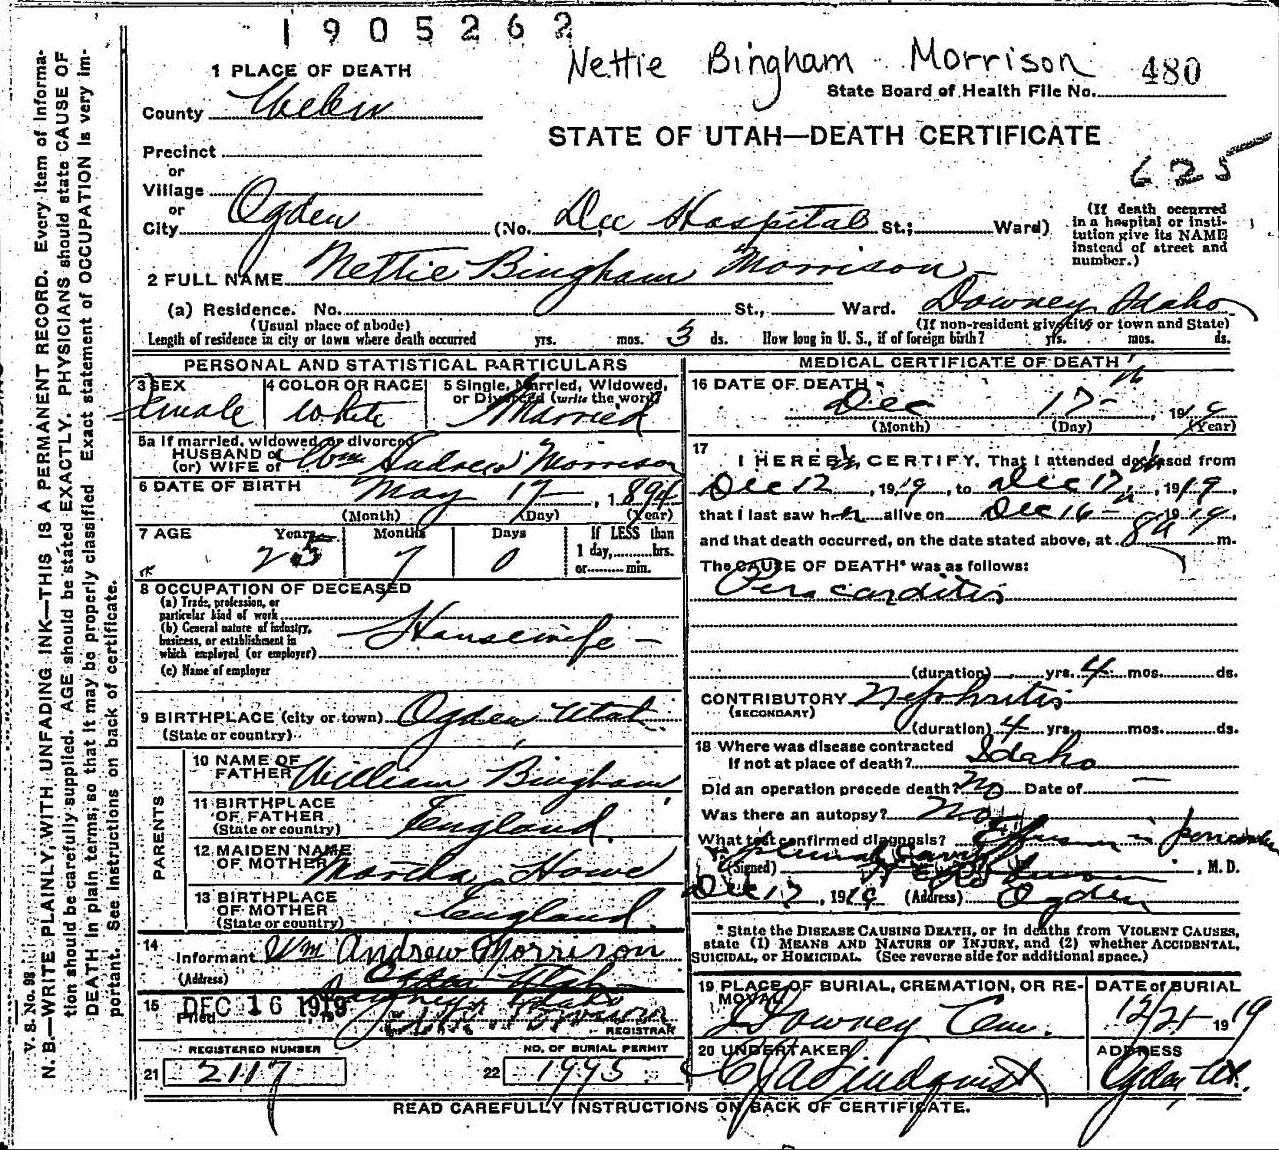 1905262
Nettie Bingham Morrison 480
1 PLACE OF DEATH
State Board of Health File No.
County Weber
STATE OF UTAH—DEATH CERTIFICATE
Precinct
625
or
Village
or
City Ogden (No. Dee Hospital St.; Ward)
(If death occurred
in a hospital or insti-
tution give its NAME
instead of street and
number.)
2 FULL NAME Nettie Bingham Morrison
(a) Residence. No. St., Ward. Downey, Idaho
(Usual place of abode) (If non-resident give city or town and State)
Length of residence in city or town where death occurred yrs. mos. 5 ds. How long in U. S., if of foreign birth? yrs. mos. ds.
PERSONAL AND STATISTICAL PARTICULARS
3 SEX Female
4 COLOR OR RACE White
5 Single, Married, Widowed,
or Divorced (write the word)
Married
5a If married, widowed or divorced
HUSBAND of
(or) WIFE of Wm Andrew Morrison
6 DATE OF BIRTH May 17 1894
(Month) (Day) (Year)
7 AGE Years 25 Months 7 Days 0
If LESS than
1 day, hrs.
or min.
8 OCCUPATION OF DECEASED
(a) Trade, profession, or
particular kind of work
(b) General nature of industry,
business, or establishment in
which employed (or employer)
Housewife
(c) Name of employer
9 BIRTHPLACE (city or town) Ogden Utah
(State or country)
PARENTS
10 NAME OF
FATHER William Bingham
11 BIRTHPLACE
OF FATHER England
(State or country)
12 MAIDEN NAME
OF MOTHER Martha Howe
13 BIRTHPLACE
OF MOTHER England
(State or country)
14
Informant Wm Andrew Morrison
(Address) Ogden Utah
15 DEC 16 1919
Filed , 19
REGISTRAR
REGISTERED NUMBER
21 2117
NO. OF BURIAL PERMIT
22 1995
MEDICAL CERTIFICATE OF DEATH
16 DATE OF DEATH
Dec 17 1919
(Month) (Day) (Year)
17 I HEREBY CERTIFY, That I attended deceased from
Dec 12, 1919, to Dec 17, 1919,
that I last saw her alive on Dec 16 1919,
and that death occurred, on the date stated above, at 8 a m.
The CAUSE OF DEATH* was as follows:
Pericarditis
(duration) yrs. 4 mos. ds.
CONTRIBUTORY Nephritis
(SECONDARY)
(duration) 4 yrs. mos. ds.
18 Where was disease contracted
If not at place of death? Idaho
Did an operation precede death? No Date of —
Was there an autopsy? No
What test confirmed diagnosis?
(Signed) , M. D.
Dec 17, 1919 (Address) Ogden
* State the DISEASE CAUSING DEATH, or in deaths from VIOLENT CAUSES,
state (1) MEANS AND NATURE OF INJURY, and (2) whether ACCIDENTAL,
SUICIDAL, or HOMICIDAL. (See reverse side for additional space.)
19 PLACE OF BURIAL, CREMATION, OR RE-
MOVAL
Downey Cem.
DATE of BURIAL
12/21 1919
20 UNDERTAKER
Lindquist
ADDRESS
Ogden, Ut.
READ CAREFULLY INSTRUCTIONS ON BACK OF CERTIFICATE.
V. S. No. 98
N. B.—WRITE PLAINLY, WITH UNFADING INK—THIS IS A PERMANENT RECORD. Every item of informa-
tion should be carefully supplied. AGE should be stated EXACTLY. PHYSICIANS should state CAUSE OF
DEATH in plain terms, so that it may be properly classified. Exact statement of OCCUPATION is very im-
portant. See instructions on back of certificate.